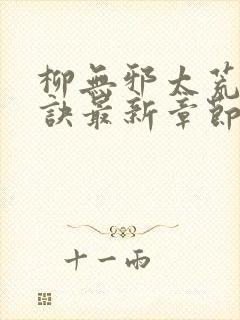 柳無邪太荒
訣最新章節
十一雨